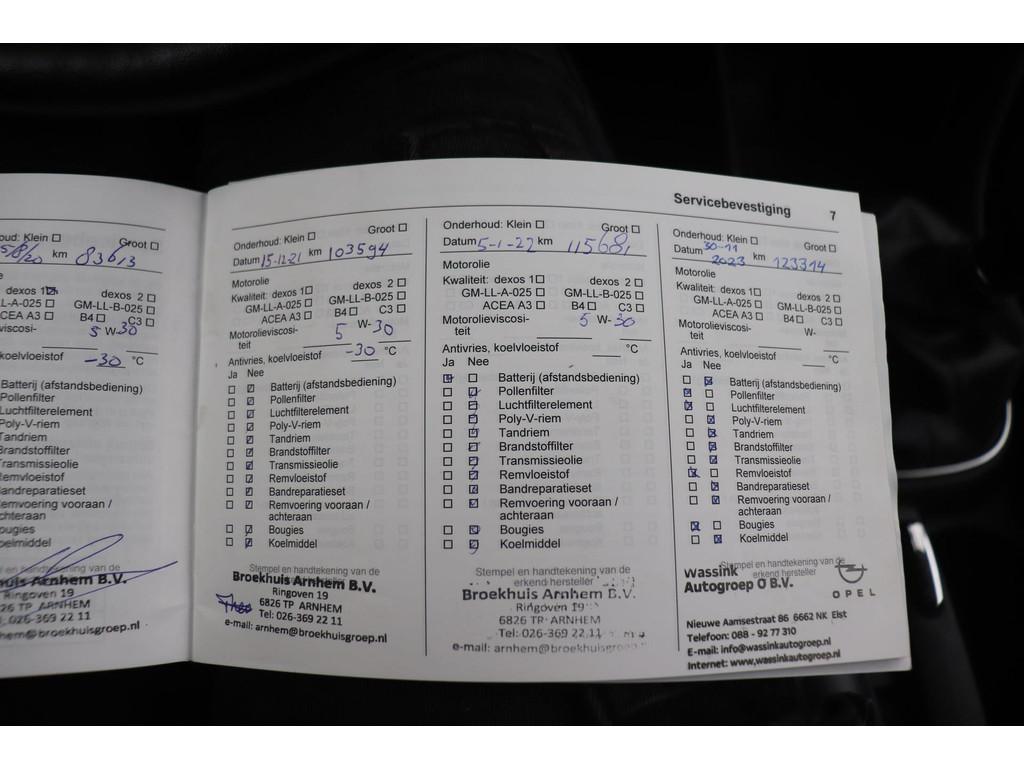 Servicebevestiging 7
oud: Klein Groot
5/8/20 km 83613
dexos 1 dexos 2
L-A-025 GM-LL-B-025
ACEA A3 B4 C3
viscosi- 5 W-30
koelvloeistof -30 °C
Batterij (afstandsbediening)
Pollenfilter
Luchtfilterelement
Poly-V-riem
Tandriem
Brandstoffilter
Transmissieolie
Remvloeistof
Bandreparatieset
emvoering vooraan /
chteraan
ougies
oelmiddel
en handtekening van de
uis Arnhem B.V.
Ringoven 19
26 TP ARNHEM
el: 026-369 22 11
hem@broekhuisgroep.nl
Onderhoud: Klein Groot
Datum 15-12-21 km 103594
Motorolie
Kwaliteit: dexos 1 dexos 2
GM-LL-A-025 GM-LL-B-025
ACEA A3 B4 C3
Motorolieviscosi- 5 W-30
teit
Antivries, koelvloeistof -30 °C
Ja Nee
Batterij (afstandsbediening)
Pollenfilter
Luchtfilterelement
Poly-V-riem
Tandriem
Brandstoffilter
Transmissieolie
Remvloeistof
Bandreparatieset
Remvoering vooraan /
achteraan
Bougies
Koelmiddel
Stempel en handtekening van de
erkend hersteller
Broekhuis Arnhem B.V.
Ringoven 19
6826 TP ARNHEM
Tel: 026-369 22 11
e-mail: arnhem@broekhuisgroep.nl
Onderhoud: Klein Groot
Datum 5-1-22 km 115681
Motorolie
Kwaliteit: dexos 1 dexos 2
GM-LL-A-025 GM-LL-B-025
ACEA A3 B4 C3
Motorolieviscosi- 5 W-30
teit
Antivries, koelvloeistof °C
Ja Nee
Batterij (afstandsbediening)
Pollenfilter
Luchtfilterelement
Poly-V-riem
Tandriem
Brandstoffilter
Transmissieolie
Remvloeistof
Bandreparatieset
Remvoering vooraan /
achteraan
Bougies
Koelmiddel
Stempel en handtekening van de
erkend hersteller
Broekhuis Arnhem B.V.
Ringoven 19
6826 TP ARNHEM
Tel: 026-369 22 11
e-mail: arnhem@broekhuisgroep
Onderhoud: Klein Groot
Datum 30-11 2023 km 123314
Motorolie
Kwaliteit: dexos 1 dexos 2
GM-LL-A-025 GM-LL-B-025
ACEA A3 B4 C3
Motorolieviscosi- W-
teit
Antivries, koelvloeistof °C
Ja Nee
Batterij (afstandsbediening)
Pollenfilter
Luchtfilterelement
Poly-V-riem
Tandriem
Brandstoffilter
Transmissieolie
Remvloeistof
Bandreparatieset
Remvoering vooraan /
achteraan
Bougies
Koelmiddel
Stempel en handtekening van de
erkend hersteller
Wassink
Autogroep O B.V.
OPEL
Nieuwe Aamsestraat 86 6662 NK Elst
Telefoon: 088 - 92 77 310
E-mail: info@wassinkautogroep.nl
Internet: www.wassinkautogroep.nl